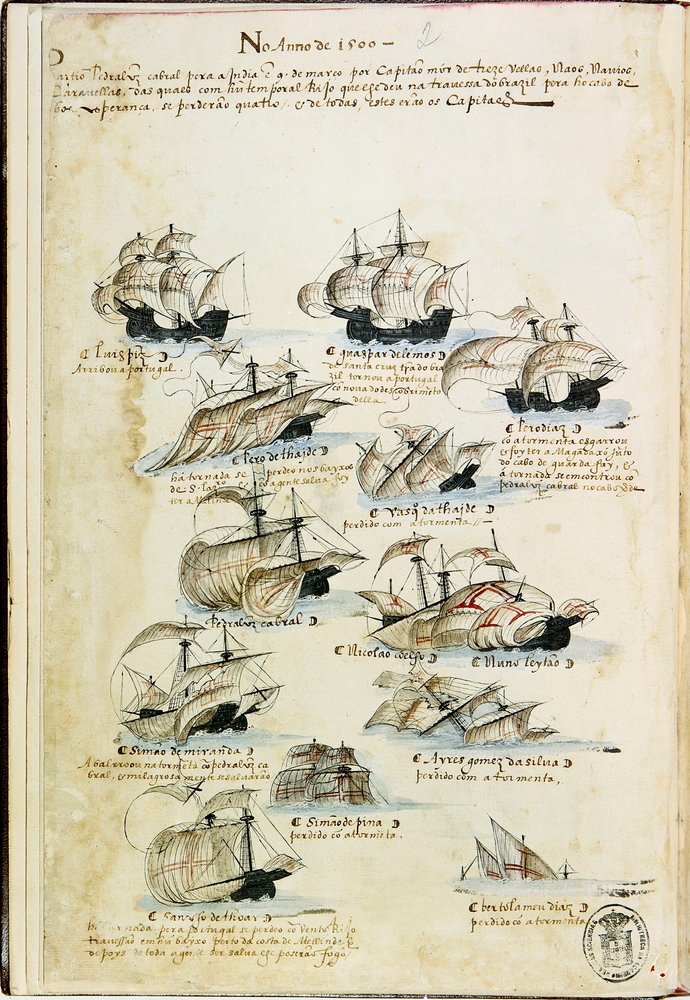 No Anno de 1500 —
2
Partio Pedraluz cabral pera a India ẽ 9. de março por Capitão mór de treze Vellas, Naos, Navios,
Caravellas, das quaes com hũ temporal Rijo que lhe deu na travessa do brazil pera ho cabo de
boa esperanca, se perderão quatro /. E de todas, estes erão os Capitaẽs
Luis piz
Arribou a portugal.
Guaspar de lemos
de santa cruz tra do bra
zil tornou a portugal
cõ nova do descobrimẽto
della
Pero diaz
cõ a tormenta esgarrou
& foy ter a Magadaxó Jũto
do cabo de guarda fuy, &
á tornada se encontrou cõ
pedraluz cabral no cabo Vde
Pero de thajde
há tornada se perdeo nos bayxos
de S. Lazro cõ agente salva foy
ter a Melinde
Vasq da thajde
perdido com a tormenta. //. —
Pedraluz cabral
Nicolao coelho
Nuno leytão
Simão de miranda
Abalrroou na tormẽta cõ pedraluz ca
bral, & milagrosamente se salvarão
Ayres gomez da silva
perdido com a tormenta,
Simão de pina
perdido cõ a tormẽta,
Sancho de thoar
há tornada pera Portugal se perdeo cõ Vento Rijo
travessão em hũ bayxo perto da costa de Mellinde, &
depoys de toda a gente ser salva lhe poserão fogo
bertolameu diaz
perdido cõ a tormenta